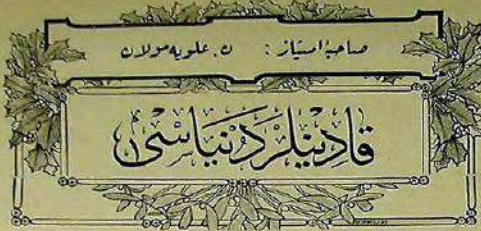 صاحبۀ امتیاز : ن. علویه مولان
قادینلر دنیاسی